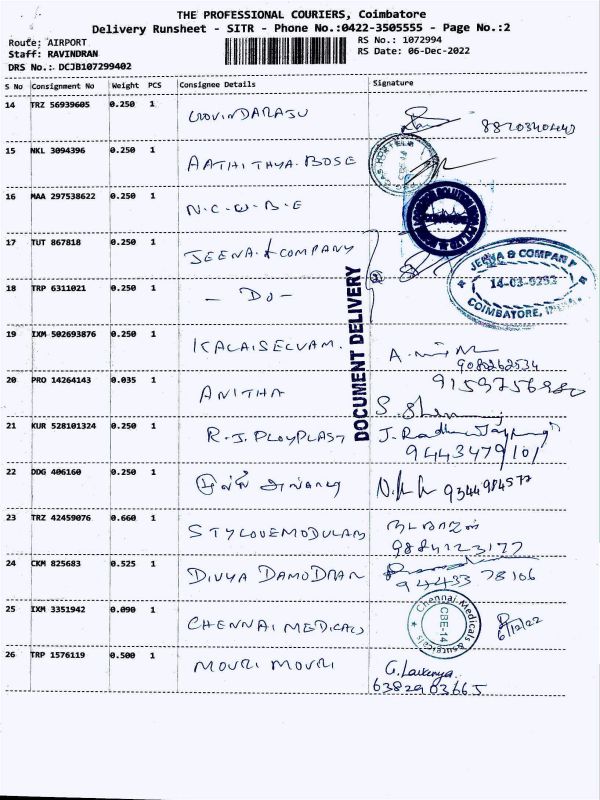 THE PROFESSIONAL COURIERS, Coimbatore
Delivery Runsheet - SITR - Phone No.:0422-3505555 - Page No.:2
Route: AIRPORT
RS No.: 1072994
Staff: RAVINDRAN
RS Date: 06-Dec-2022
DRS No.: DCJB107299402
S No Consignment No Weight PCS Consignee Details Signature
14 TRZ 56939605 0.250 1 GOVINDARASU
15 NKL 3094396 0.250 1 AATHITHYA BOSE
16 MAA 297538622 0.250 1 N.C.W.B.E
17 TUT 867818 0.250 1 JEENA & COMPANY
JEENA & COMPANY
14-03-0293
COIMBATORE, INDIA
18 TRP 6311021 0.250 1 - DO -
DOCUMENT DELIVERY
19 IXM 502693876 0.250 1 KALAISELVAM.
9080262534
20 PRO 14264143 0.035 1 ANITHA
9159756980
21 KUR 528101324 0.250 1 R.J. PLOYPLAST
9443479101
22 DDG 406160 0.250 1
9344984577
23 TRZ 42459076 0.660 1 STYLOVEMODULAR
நடராஜன்
9884123177
24 CKM 825683 0.525 1 DIVYA DAMODRAN
94433 78106
25 IXM 3351942 0.090 1 CHENNAI MEDICALS
Chennai Medicals & Surgicals
CBE-14
6/12/22
26 TRP 1576119 0.500 1 MOURI MOURI
G. Lavanya
6382903665